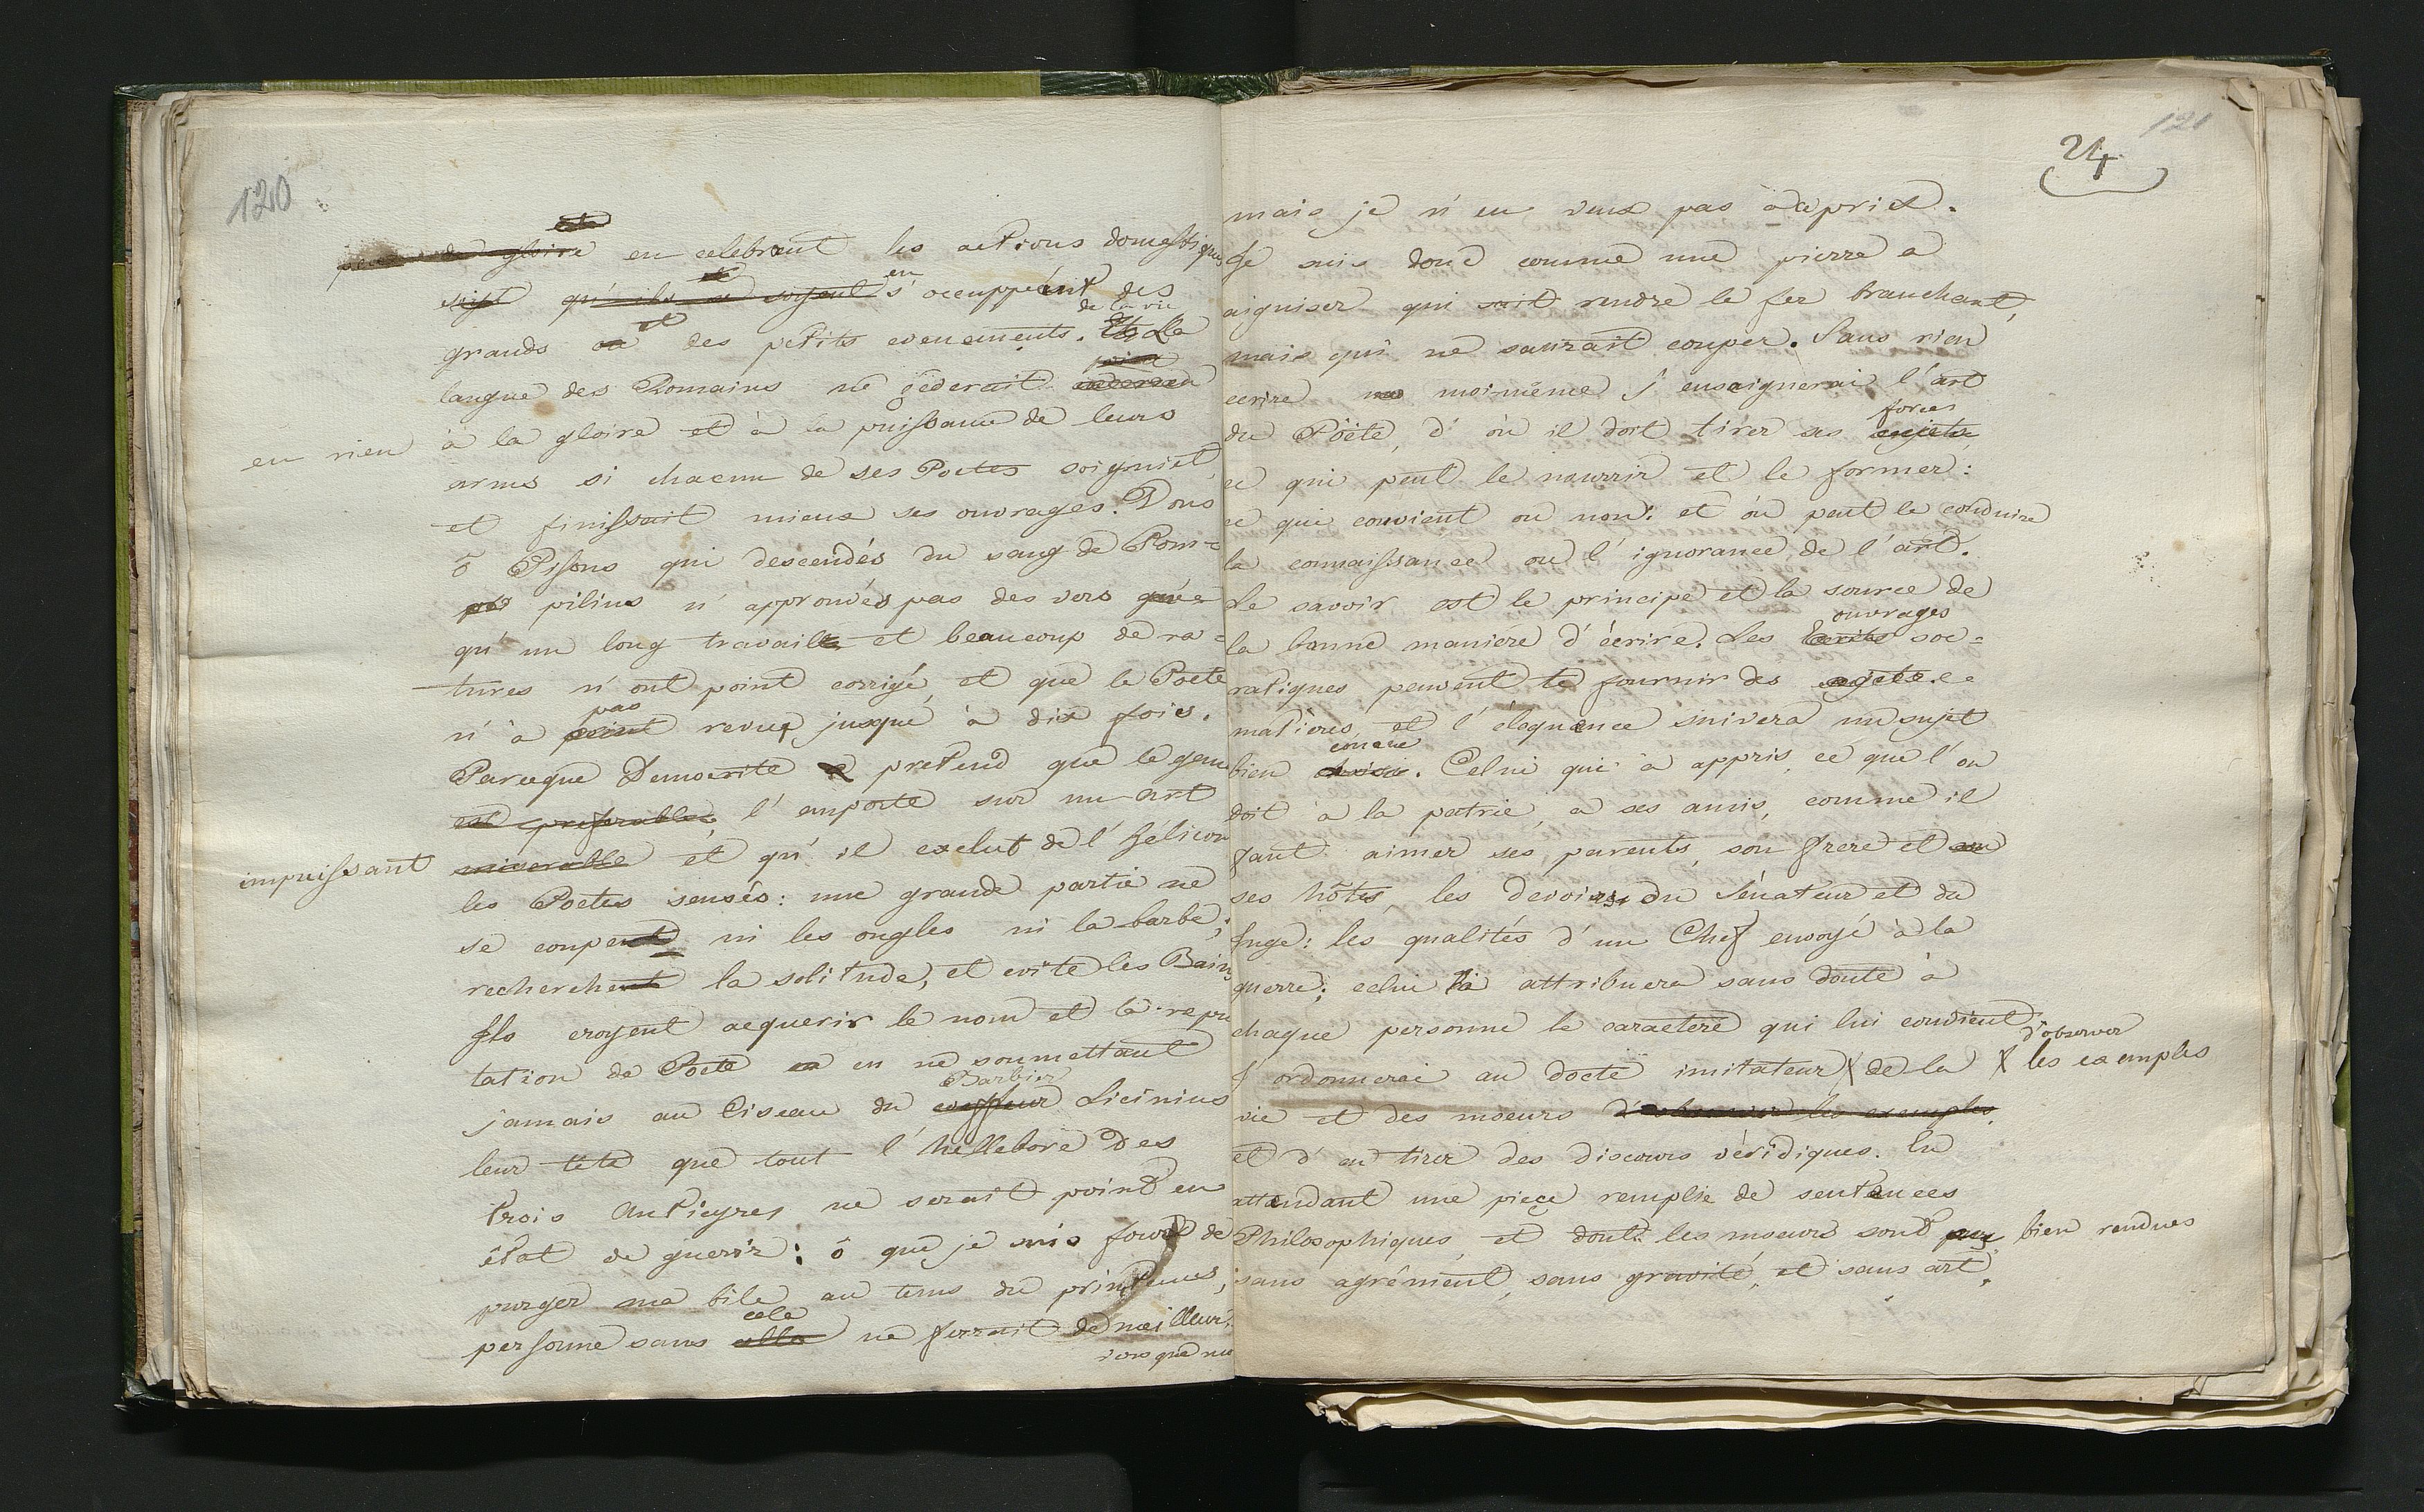 120
de gloire en celebrant les actions domestiques
soit qu'ils se soyent s'occuppéant des
en
de la vie
grands ou des petits evenements. La
et
langue des Romains ne cèderait
en rien
à la gloire et à la puissance de leurs
armes si chacun de ses Poetes soigniet
et finissait mieux ses ouvrages. Vous
ô Pisons qui descendés du sang de Pom-
pilius n'approuvés pas des vers
qu'un long travaille et beaucoup de ra-
tures n'ont point corrigé, et que le Poete
pas
n'à point revue jusque à dix fois.
Parceque Democrite pretend que le genie
est preferable, l'emporte sur un art
impuissant
miserable et qu'il exclut de l'hélicon
les Poetes sensés: une grande partie ne
se coupent ni les ongles ni la barbe;
recherchent la solitude, et evite les Bains
Ils croyent acquerir le nom et la repu
tation de Poete en ne soumettant
Barbier
jamais au Ciseau du coiffeur Licinius
leur tête que tout l'hellebore des
trois Anticyres ne serait point en
état de guerir: ô que je suis fou de
purger ma bile au tems du printems,
cela
personne sans cella ne ferrait de meilleur.
vers que moi
121
24
mais je n'en veux pas à ce prix.
Je suis donc comme une pierre a
aiguiser qui sait rendre le fer tranchant,
mais qui ne saurait couper. Sans rien
ecrire moi-même j'ensaignerai l'art
forces
du Poëte, d'où il doit tirer ses sujets,
ce qui peut le nourrir et le former:
ce qui convient ou non: et où peut le conduire
la connaissance ou l'ignorance de l'art.
Le savoir est le principe et la source de
ouvrages
la bonne maniere d'écrire. Les écrits soc-
ratiques peuvent te fournir des sujets.
matieres, et l'éloquence suivera un sujet
concue
bien choisi. Celui qui à appris, ce que l'on
doit à la patrie, a ses amis, comme il
faut aimer ses parents, son frere et
ses hôtes, les devoirs du Sénateur et du
Juge: les qualités d'un Chef envoyé à la
guerre; celui là attribuera sans doute à
chaque personne le caractere qui lui convient
d'observer
J'ordonnerai au docte imitateur X de la X les exemples
vie et des moeurs d'observer les exemples,
et d'en tirer des discours véridiques. En
attendant une piece remplie de sentences
Philosophiques, et dont les moeurs sont bien rendues
sans agrément, sans gravité, et sans art,